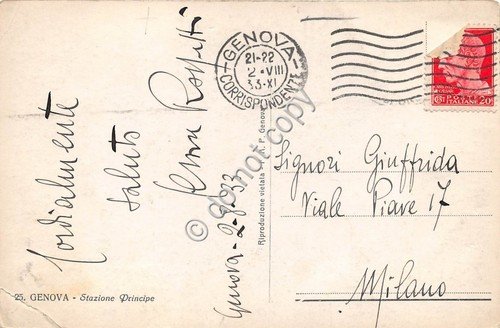 Cordialmente
saluto
Rossetti
Genova - 2-8-33
25. GENOVA - Stazione Principe
Riproduzione vietata
GENOVA
CORRISPONDENZE
21-22
2·VIII
33·XI
ITALIANE
20
Signori Giuffrida
Viale Piave 17
Milano